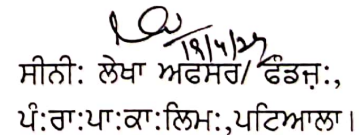 ਸੀਨੀ: ਲੇਖਾ ਅਫਸਰ/ ਫੰਡਜ਼:,
ਪੰ:ਰਾ:ਪਾ:ਕਾ:ਲਿਮ:,ਪਟਿਆਲਾ।